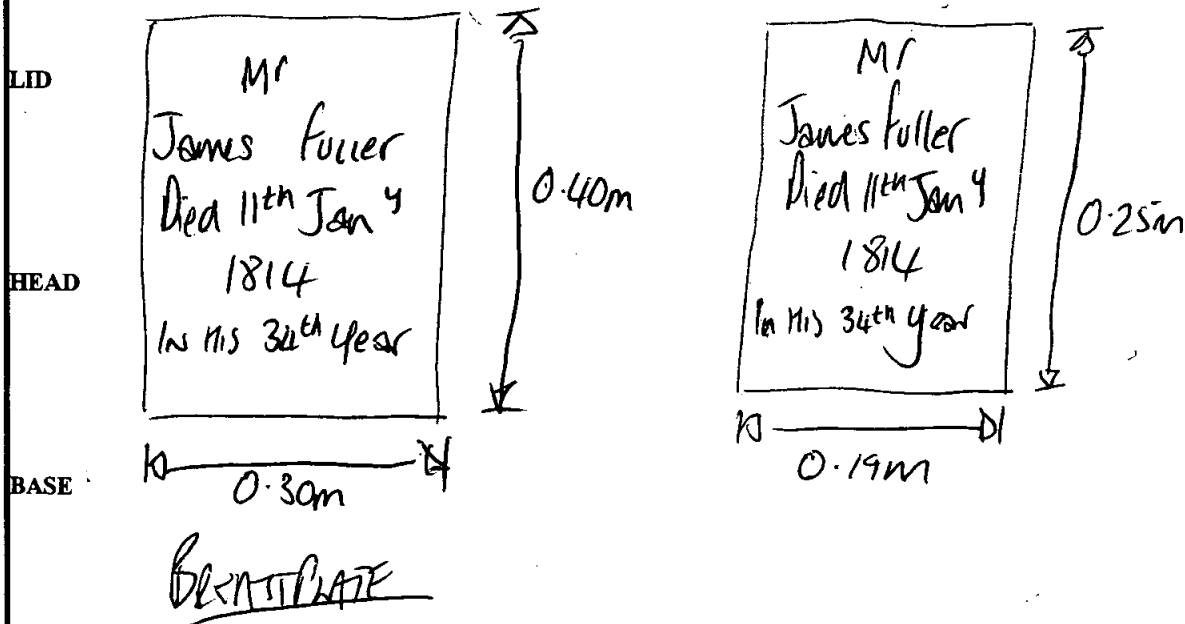 LID
HEAD
BASE
Mr
James Fuller
Died 11th Jany
1814
In His 34th Year
0.40m
0.30m
BREASTPLATE
Mr
James Fuller
Died 11th Jany
1814
In His 34th year
0.25m
0.19m